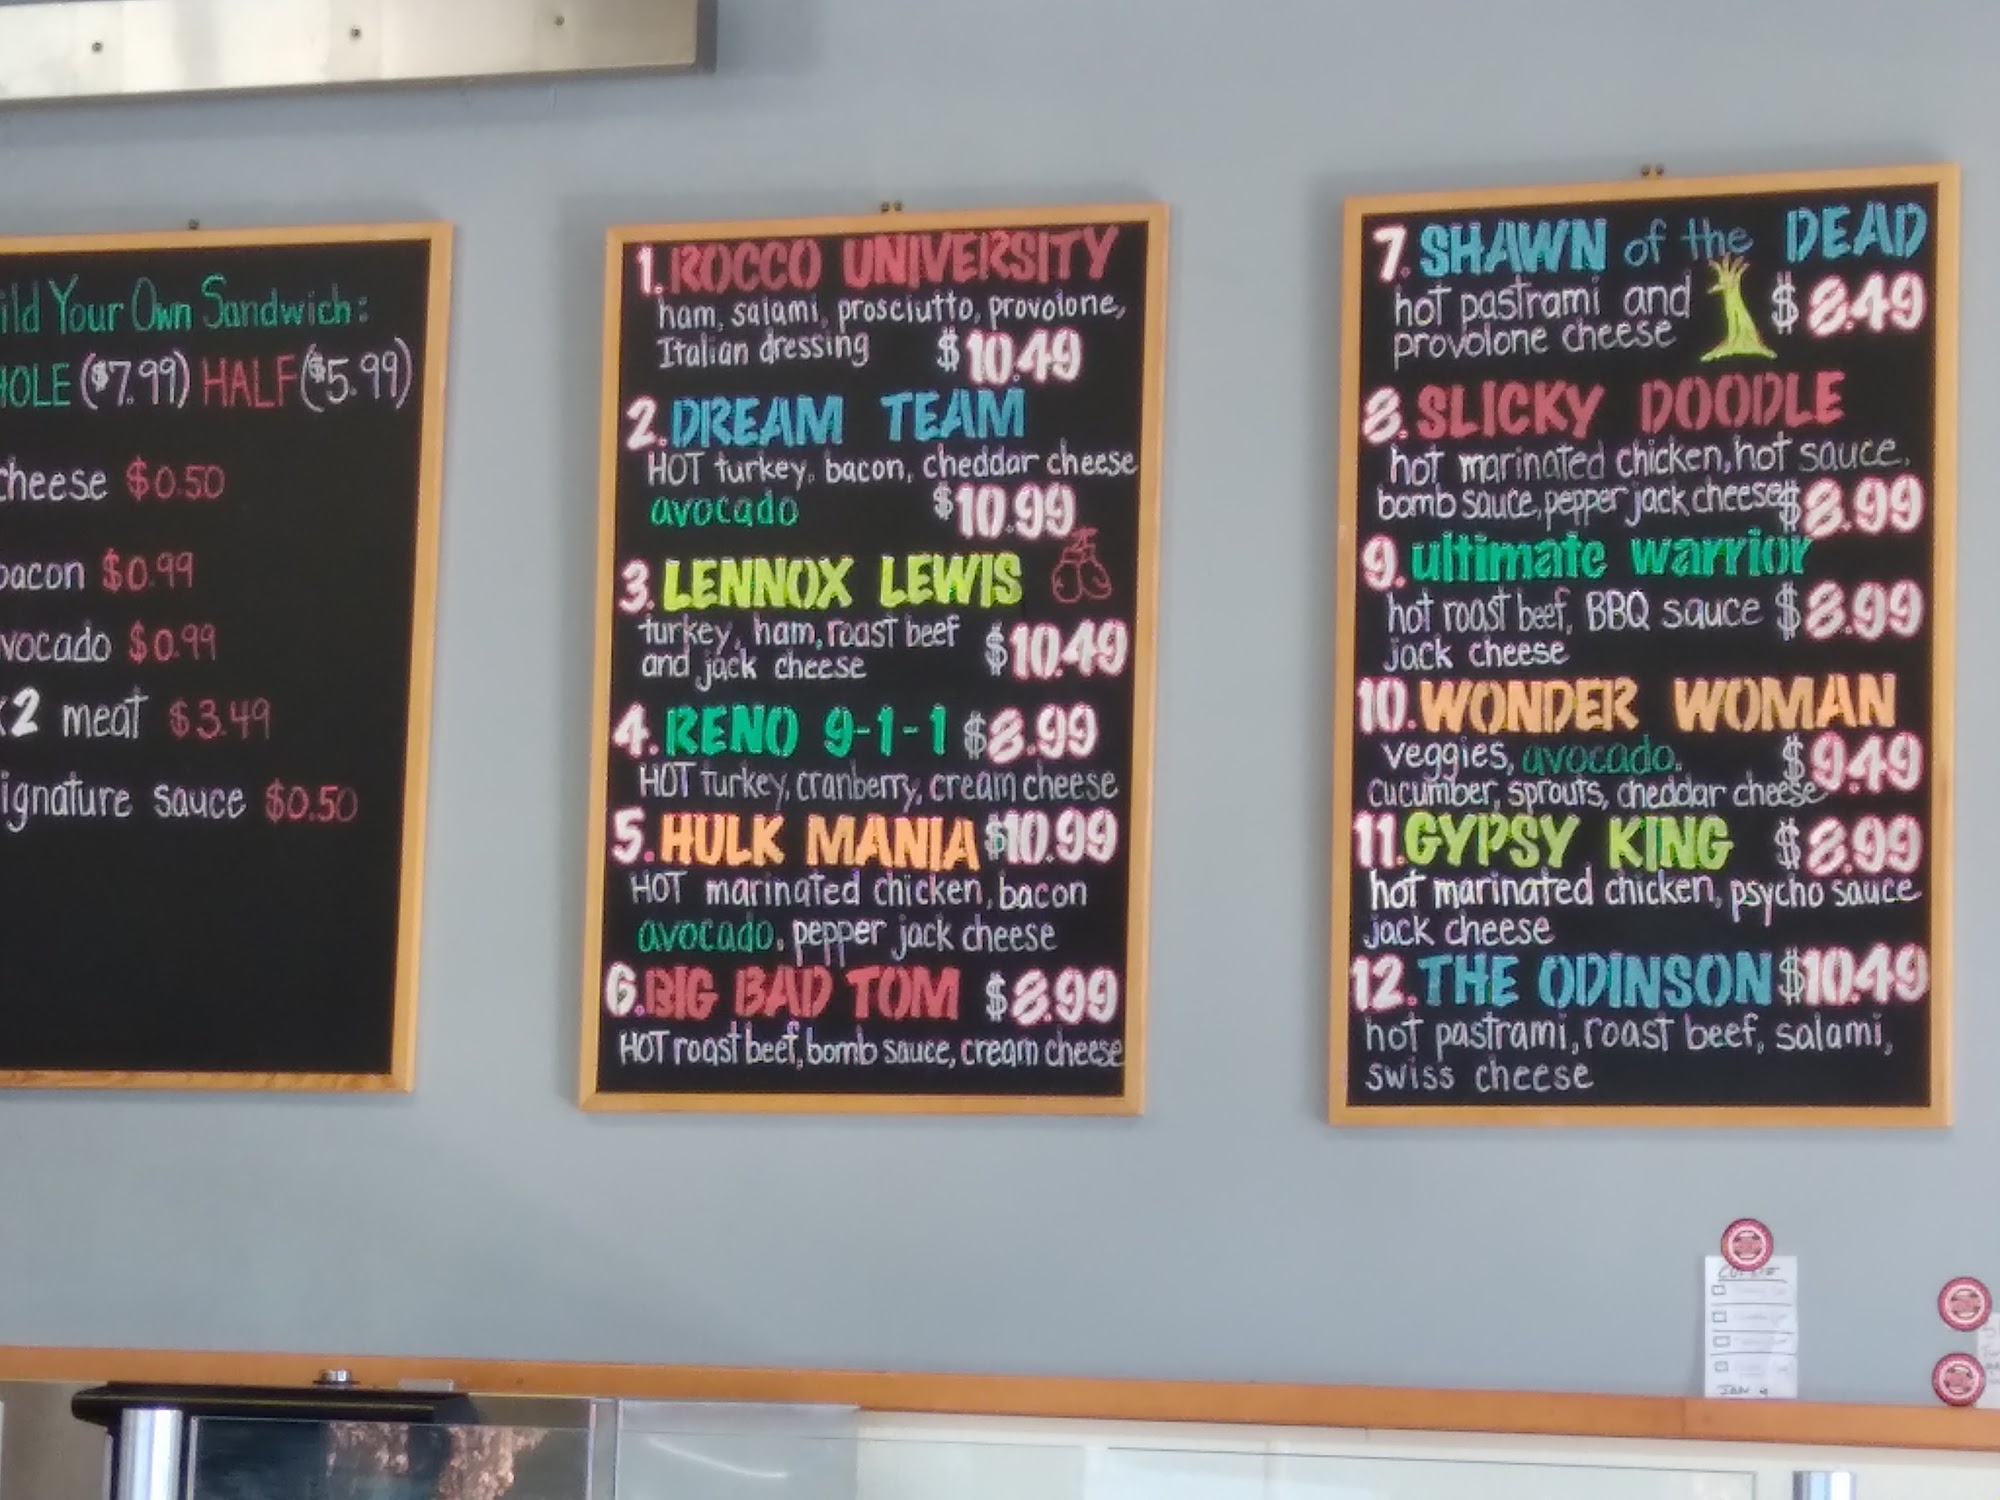 ild Your Own Sandwich:
HOLE ($7.99) HALF ($5.99)
cheese $0.50
bacon $0.99
vocado $0.99
x2 meat $3.49
ignature sauce $0.50
1. ROCCO UNIVERSITY
ham, salami, prosciutto, provolone,
Italian dressing $10.49
2. DREAM TEAM
HOT turkey, bacon, cheddar cheese
avocado $10.99
3. LENNOX LEWIS
turkey, ham, roast beef
and jack cheese $10.49
4. RENO 9-1-1 $8.99
HOT turkey, cranberry, cream cheese
5. HULK MANIA $10.99
HOT marinated chicken, bacon
avocado, pepper jack cheese
6. BIG BAD TOM $8.99
HOT roast beef, bomb sauce, cream cheese
7. SHAWN of the DEAD
hot pastrami and $8.49
provolone cheese
8. SLICKY DOODLE
hot marinated chicken, hot sauce,
bomb sauce, pepper jack cheese $8.99
9. ultimate warrior
hot roast beef, BBQ sauce $8.99
jack cheese
10. WONDER WOMAN
veggies, avocado, $9.49
cucumber, sprouts, cheddar cheese
11. GYPSY KING $8.99
hot marinated chicken, psycho sauce
jack cheese
12. THE ODINSON $10.49
hot pastrami, roast beef, salami,
swiss cheese